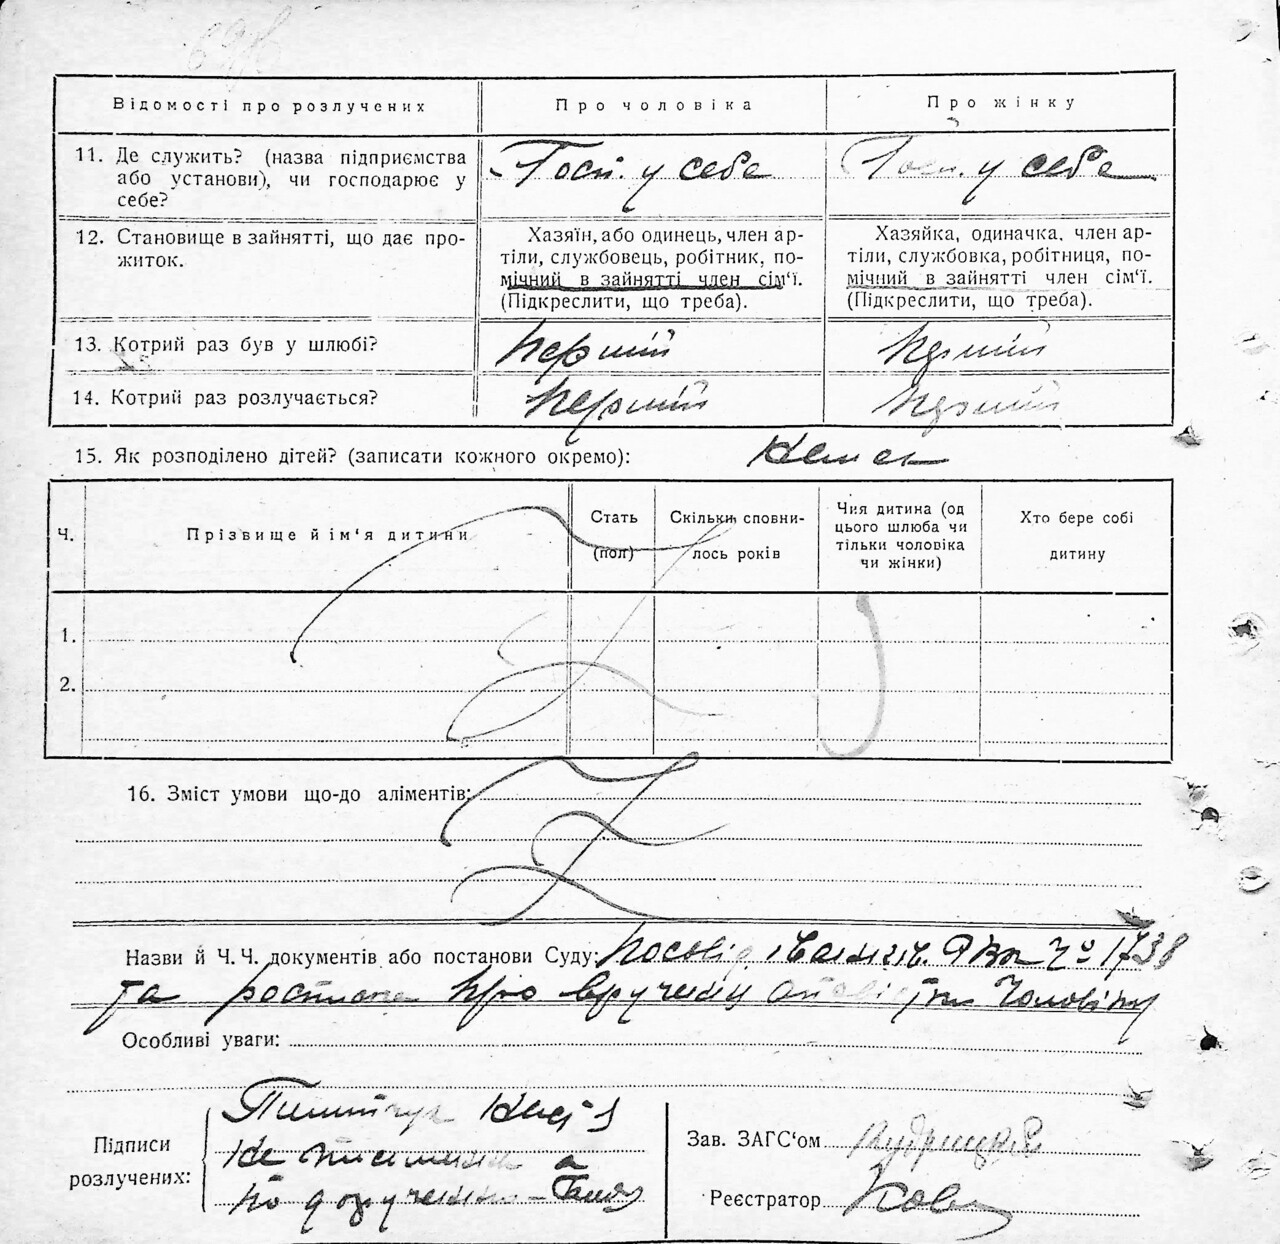 Відомості про розлучених
Про чоловіка
Про жінку
11. Де служить? (назва підприємства
або установи), чи господарює у
себе?
Госп. у себе
Госп. у себе
12. Становище в зайнятті, що дає про-
житок.
Хазяїн, або одинець, член ар-
тіли, службовець, робітник, по-
мічний в зайнятті член сім'ї.
(Підкреслити, що треба).
Хазяйка, одиначка, член ар-
тіли, службовка, робітниця, по-
мічний в зайнятті член сім'ї.
(Підкреслити, що треба).
13. Котрий раз був у шлюбі?
перший
перший
14. Котрий раз розлучається?
перший
перший
15. Як розподілено дітей? (записати кожного окремо):
Ч.
Прізвище й ім'я дитини
Стать
(пол)
Скільки сповни-
лось років
Чия дитина (од
цього шлюба чи
тільки чоловіка
чи жінки)
Хто бере собі
дитину
1.
2.
16. Зміст умови що-до аліментів:
Назви й Ч. Ч. документів або постанови Суду: 1738
та про вручення чоловіку
Особливі уваги:
Підписи
розлучених:
не письменна а
по дорученню
Зав. ЗАГС'ом
Реєстратор